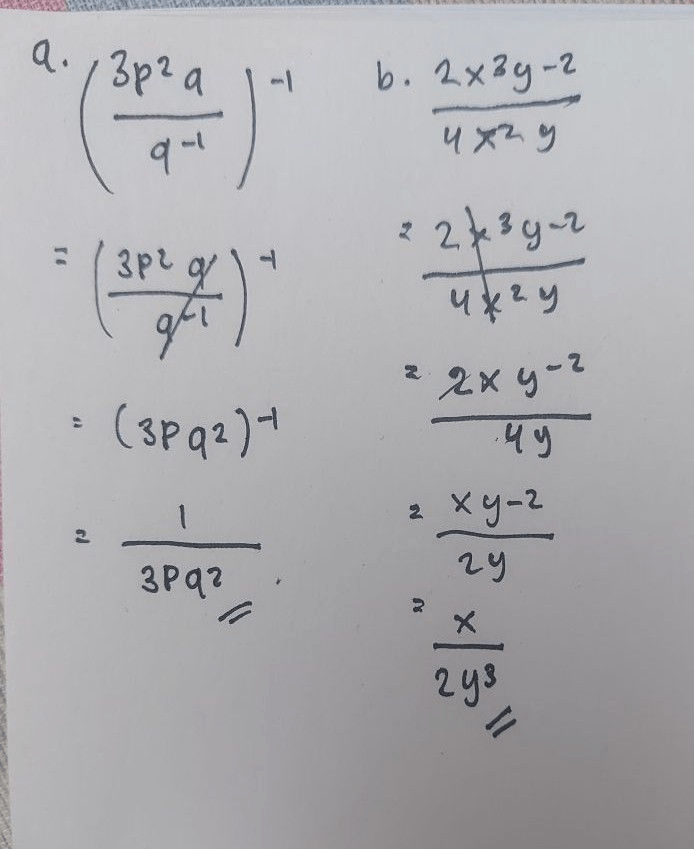 a. (3p²q / q⁻¹)⁻¹
= (3p²q / q⁻¹)⁻¹
= (3pq²)⁻¹
= 1 / 3pq²
b. 2x³y⁻² / 4x²y
= 2x³y⁻² / 4x²y
= 2xy⁻² / 4y
= xy⁻² / 2y
= x / 2y³